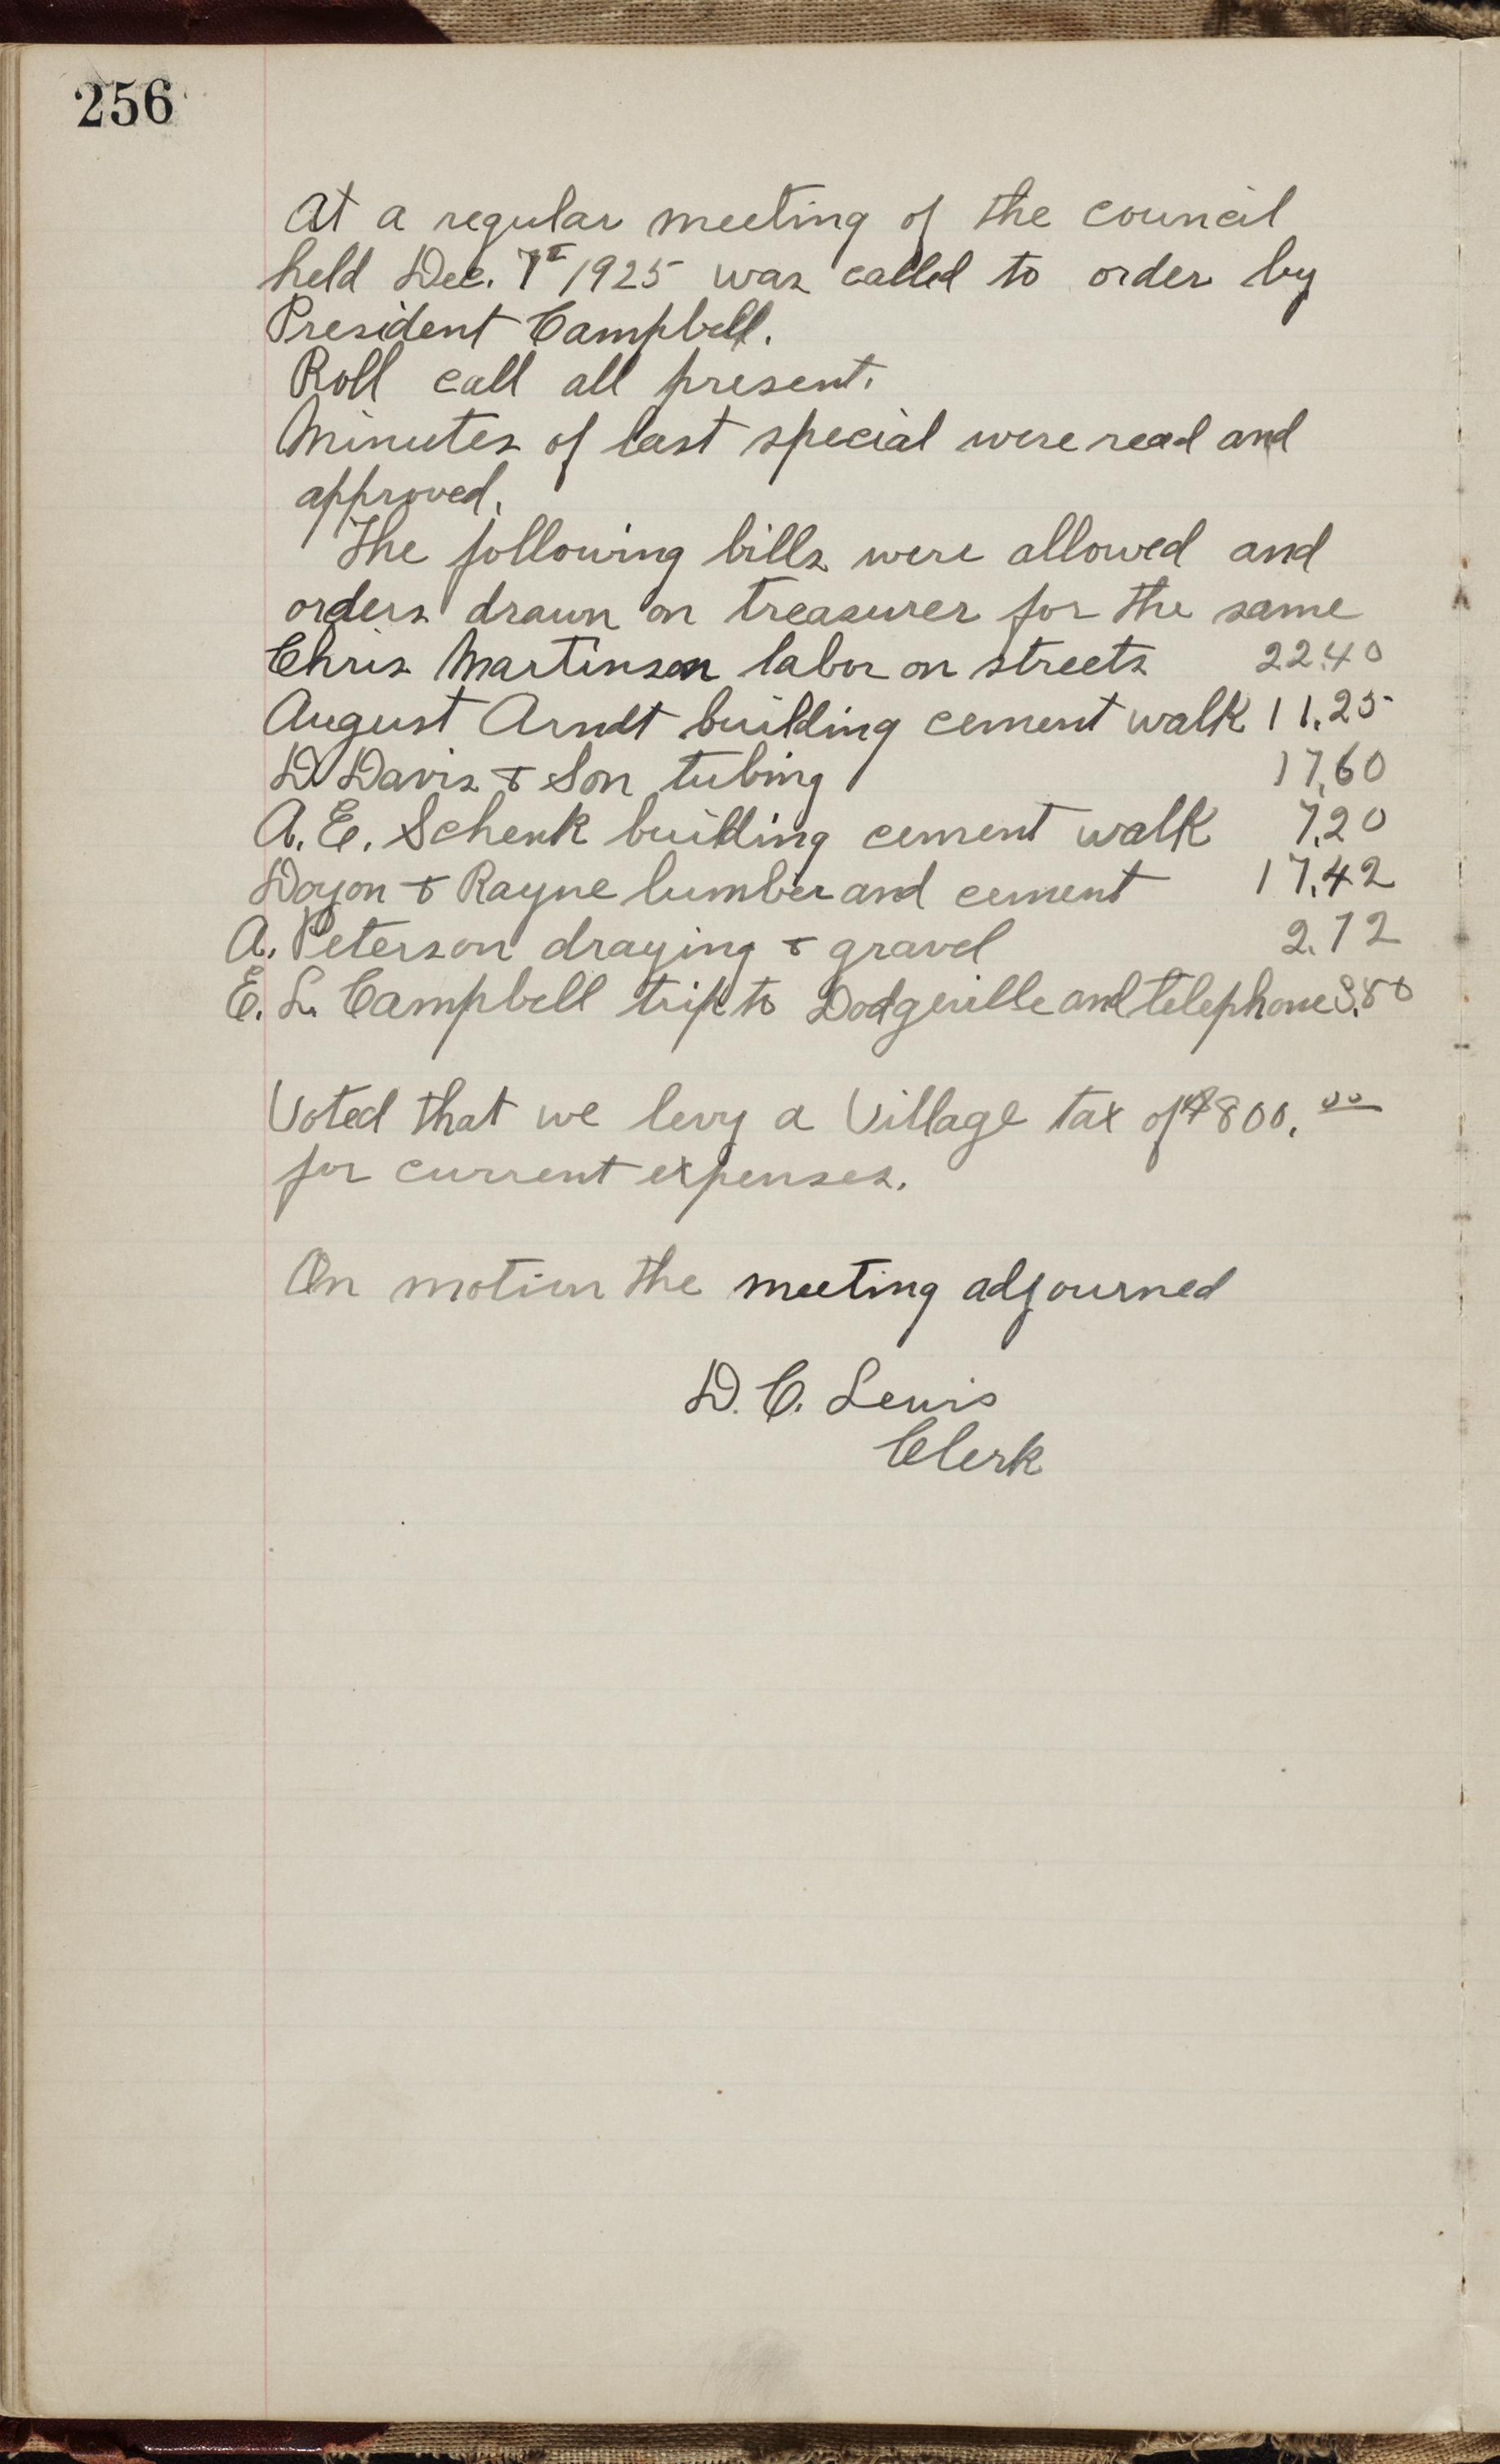 256
At a regular meeting of the council
held Dec. 7th 1925 was called to order by
President Campbell.
Roll call all present.
Minutes of last special were read and
approved.
The following bills were allowed and
orders drawn on treasurer for the same
Chris Martinson labor on streets 22.40
August Arndt building cement walk 11.25
D. Davis & Son tubing 17.60
A. E. Schenk building cement walk 7.20
Doyon & Rayne lumber and cement 17.42
A. Peterson draying & gravel 2.72
E. L. Campbell trip to Dodgeville and telephone
Voted that we levy a Village tax of $800.00
for current expenses.
On motion the meeting adjourned
D. C. Lewis
Clerk